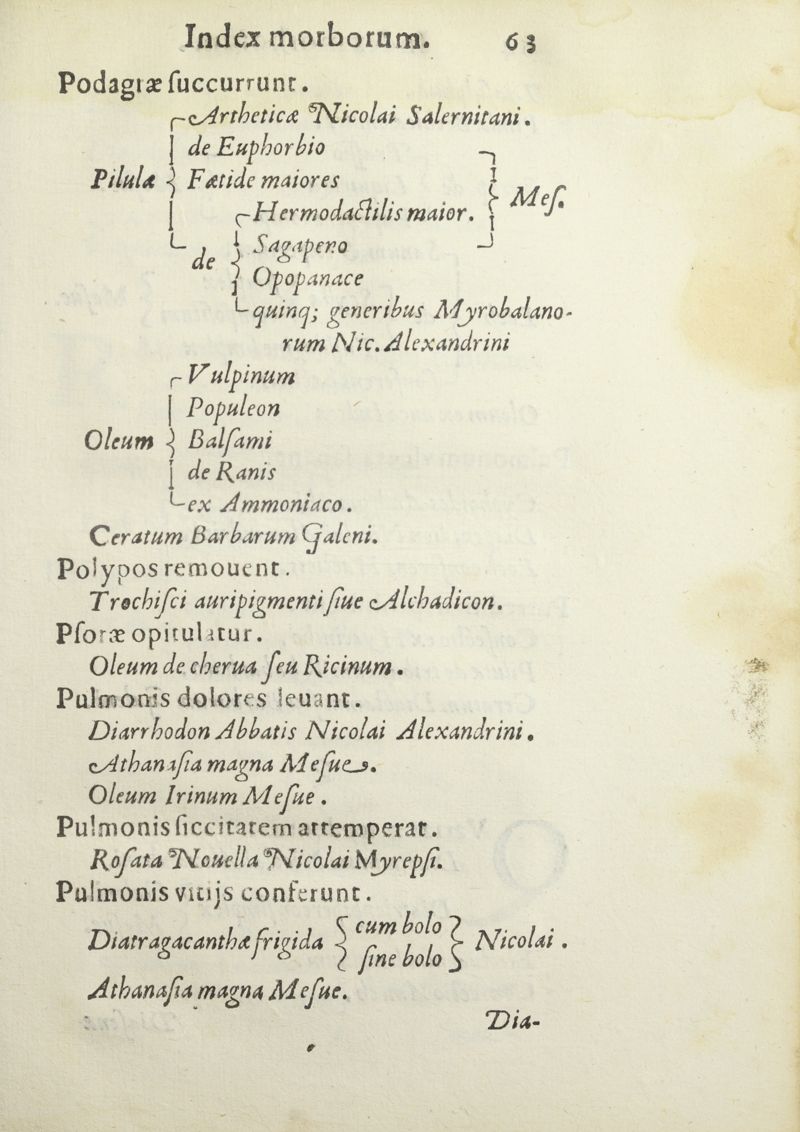 Index morborum. 63
Podagræ ſuccurrunt.
Artheticæ Nicolai Salernitani.
de Euphorbio
Pilulæ Fætide maiores Meſ.
Hermodactilis maior.
de Sagapeno
Opopanace
quinq; generibus Myrobalano-
rum Nic. Alexandrini
Vulpinum
Populeon
Oleum Balſami
de Ranis
ex Ammoniaco.
Ceratum Barbarum Galeni.
Polypos remouent.
Trochiſci auripigmenti ſiue Alchadicon.
Pſoræ opitulatur.
Oleum de cherua ſeu Ricinum.
Pulmonis dolores leuant.
Diarrhodon Abbatis Nicolai Alexandrini.
Athanaſia magna Meſue.
Oleum Irinum Meſue.
Pulmonis ſiccitatem attemperat.
Roſata Nouella Nicolai Myrepſi.
Pulmonis vitijs conferunt.
Diatragacanthæ frigida cum bolo Nicolai.
ſine bolo
Athanaſia magna Meſue.
Dia-